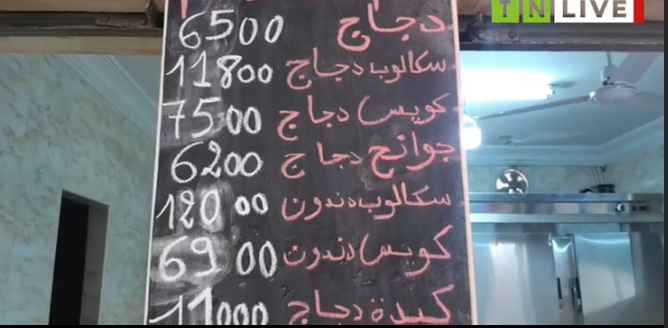 TN LIVE
دجاج 6500
سكالوب دجاج 11800
كويس دجاج 7500
جوانح دجاج 6200
سكالوب دندون 12000
كويس دندون 6900
كبدة دجاج 11000